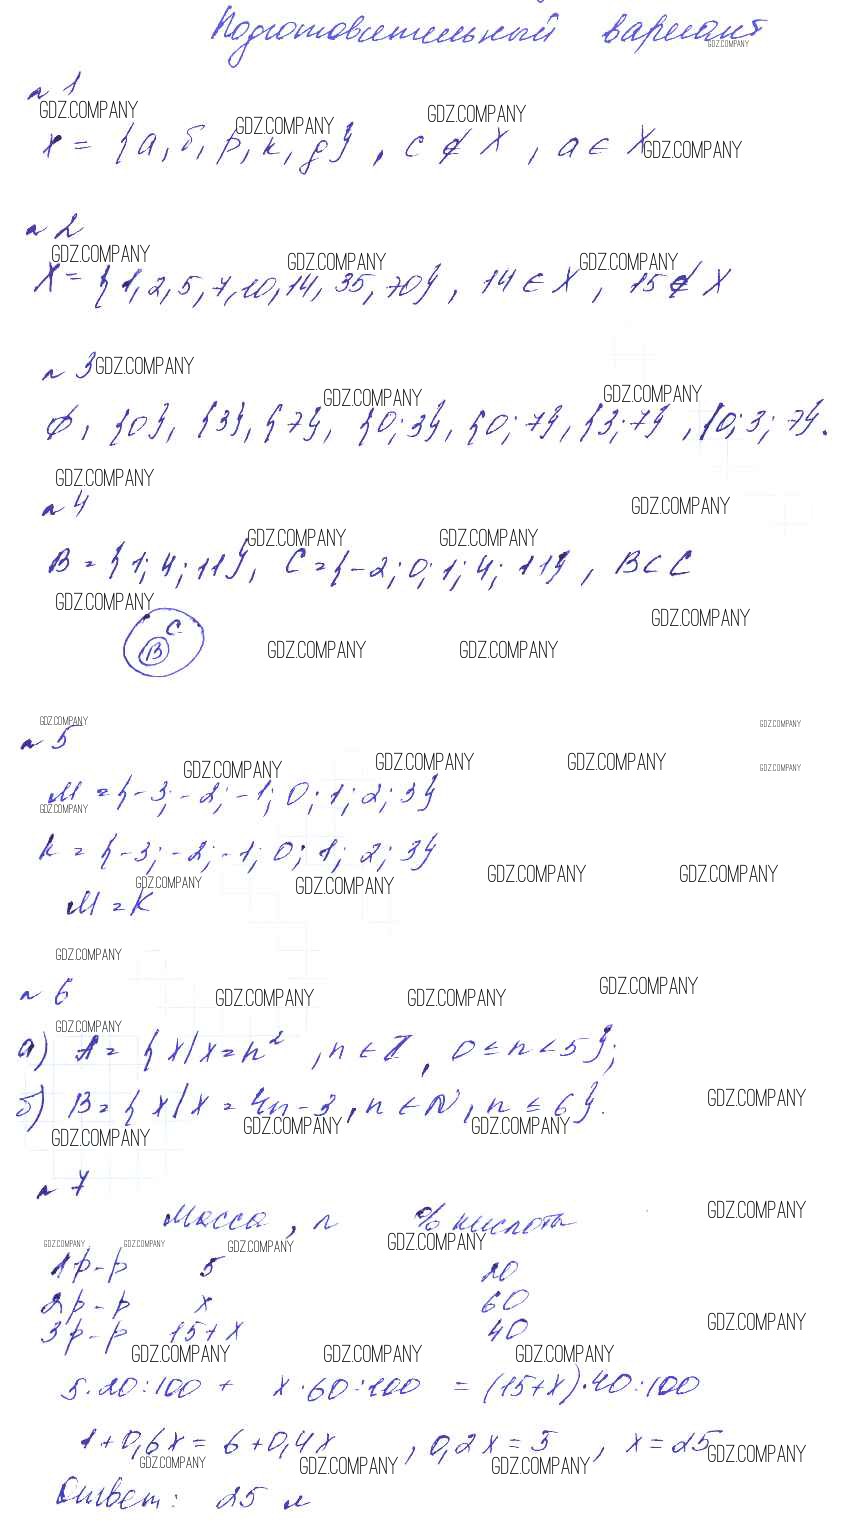 Подготовительный вариант
№ 1
X = {а, б, р, к, д}, с ∉ X, а ∈ X
№ 2
X = {1, 2, 5, 7, 10, 14, 35, 70}, 14 ∈ X, 15 ∉ X
№ 3
∅, {0}, {3}, {7}, {0; 3}, {0; 7}, {3; 7}, {0; 3; 7}.
№ 4
B = {1; 4; 11}, C = {-2; 0; 1; 4; 11}, B ⊂ C
C
B
№ 5
M = {-3; -2; -1; 0; 1; 2; 3}
K = {-3; -2; -1; 0; 1; 2; 3}
M = K
№ 6
а) A = {x | x = n², n ∈ Z, 0 ≤ n < 5};
б) B = {x | x = 4n - 3, n ∈ N, n ≤ 6}.
№ 7
Масса, л % кислоты
1 р-р 5 20
2 р-р x 60
3 р-р 15+x 40
5·20:100 + x·60:100 = (15+x)·40:100
1+0,6x = 6+0,4x, 0,2x = 5, x = 25
Ответ: 25 л
GDZ.COMPANY